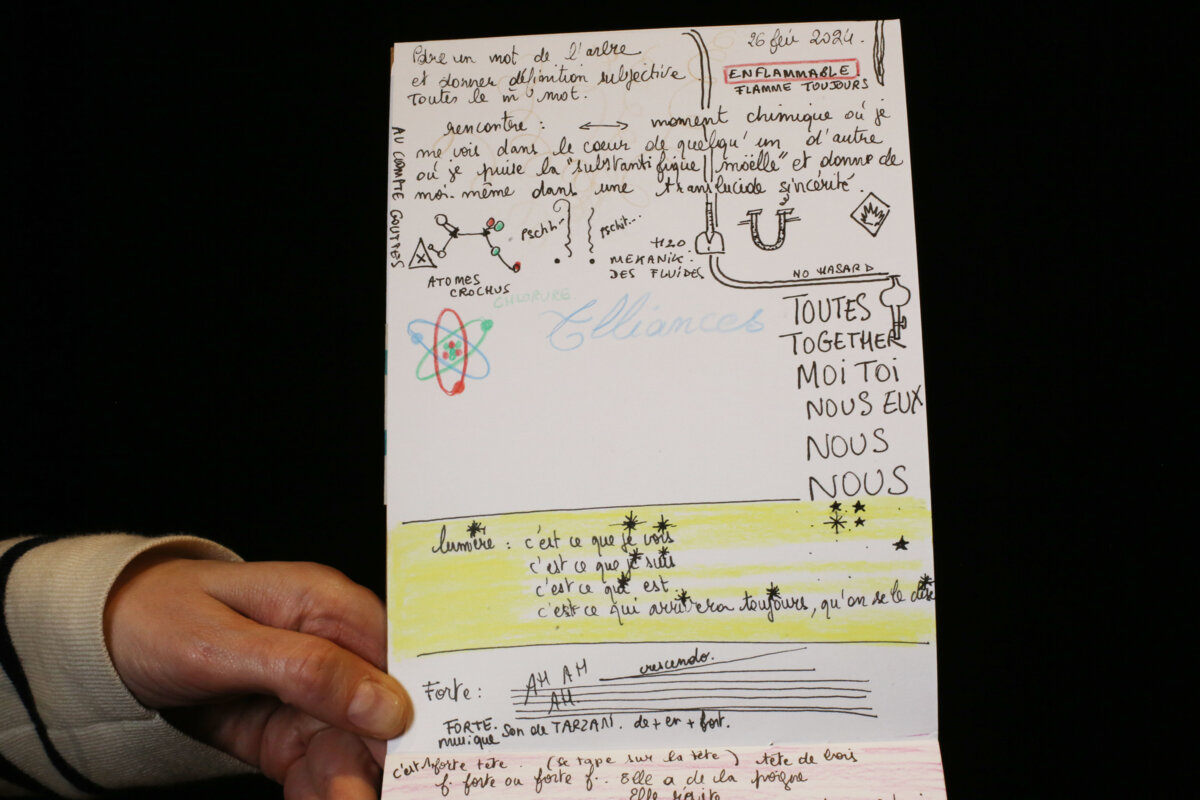 un mot de l'arbre
et donner définition subjective
Toutes le m̂ mot.
26 fév 2024.
ENFLAMMABLE
FLAMME TOUJOURS
rencontre : ↔ moment chimique où je
me vois dans le coeur de quelqu'un d'autre
où je puise la "substantifique moëlle" et donne de
moi-même dans une translucide sincérité.
AU COMPTE GOUTTES
pschh-
pschit...
X
ATOMES
CROCHUS
H2O
MEKANIK
DES FLUIDES
NO HASARD
CHLORURE
Elliances
TOUTES
TOGETHER
MOI TOI
NOUS EUX
NOUS
NOUS
lumière : c'est ce que je vois
c'est ce que je suis
c'est ce qui est
c'est ce qui arrivera toujours, qu'on se le dise
Forte : AH AH crescendo.
AH
FORTE. son de TARZAN. de + en + fort.
musique
c'est 1 forte tête. (se tape sur la tête) tête de bois
f. forte ou forte f.. Elle a de la poigne
Elle